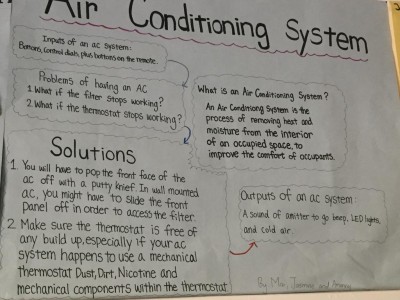 Air Conditioning System
Inputs of an ac system:
Buttons, control dials, plus buttons on the remote.
Problems of having an AC
1. What if the filter stops working?
2. What if the thermostat stops working?
What is an Air Conditioning System?
An Air Conditiong System is the
process of removing heat and
moisture from the interior
of an occupied space, to
improve the comfort of occupants.
Solutions
1. You will have to pop the front face of the
ac off with a putty knief. In wall mourned
AC, you might have to slide the front
panel off in order to access the filter.
2. Make sure the thermostat is free of
any build up, especially if your ac
system happens to use a mechanical
thermostat Dust, Dirt, Nicotine and
mechanical components within the thermostat
Outputs of an ac system:
A sound of amitter to go beep, LED lights,
and cold air.
By
and